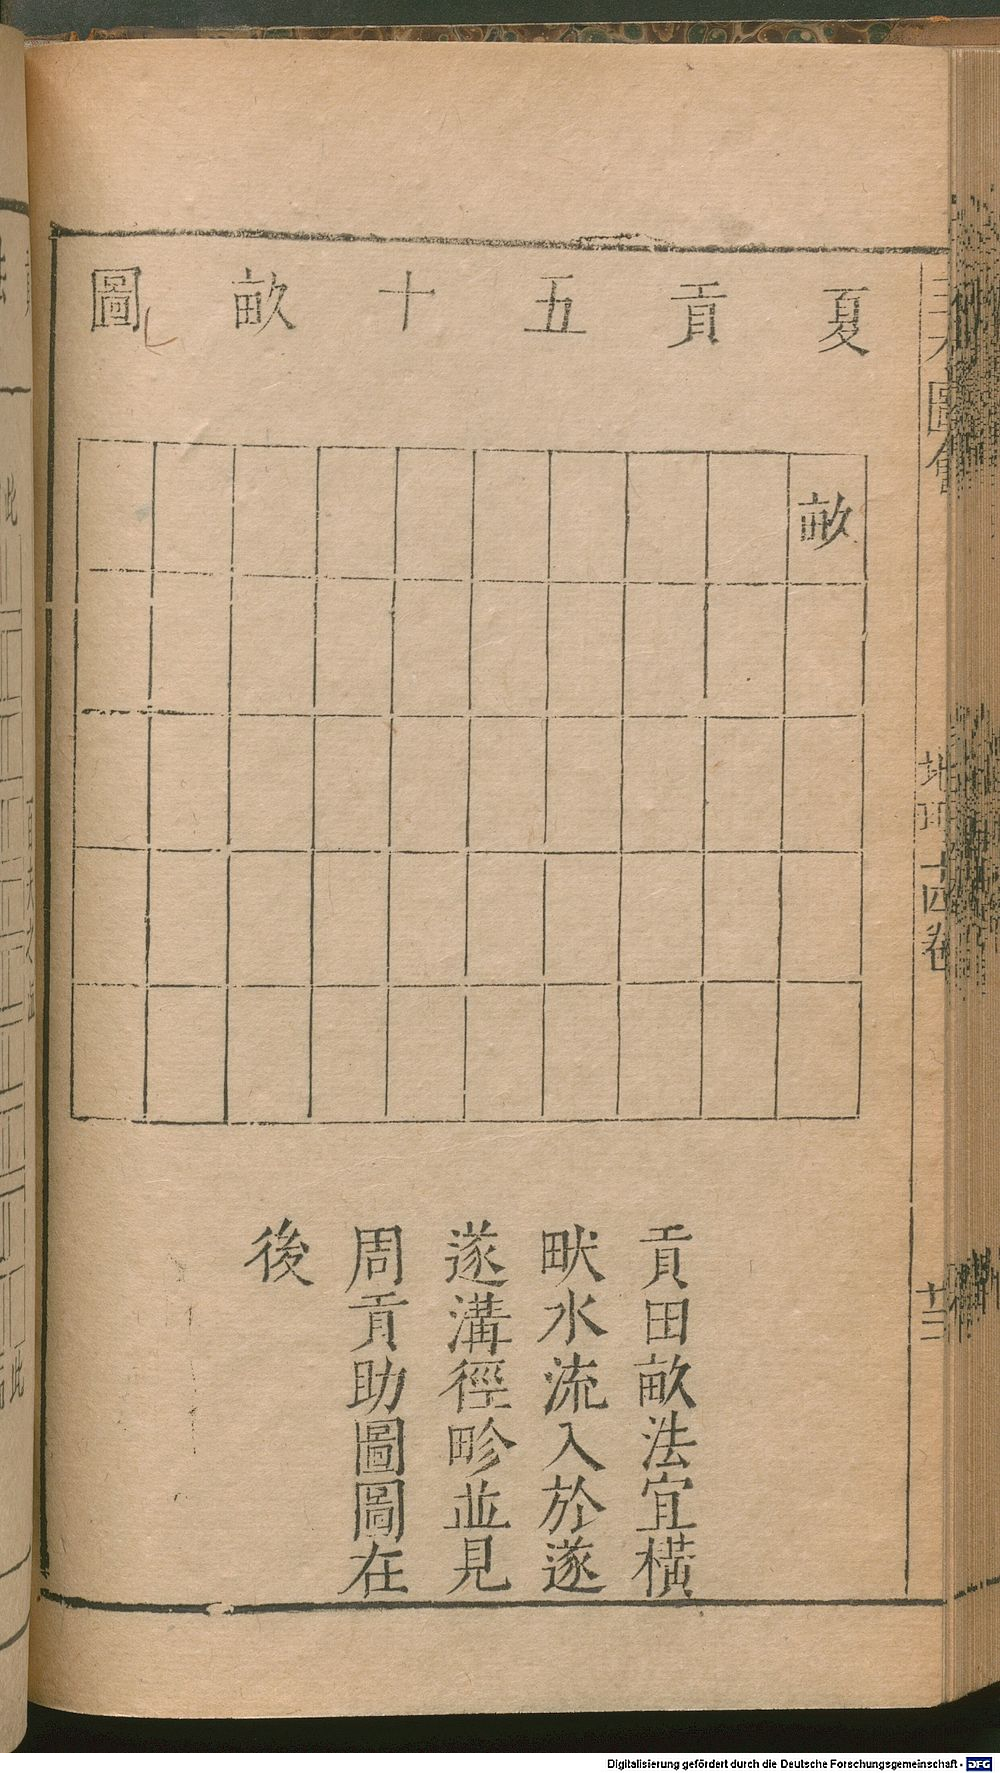 夏貢五十畝圖
畝
貢田畝法宜橫
畎水流入於遂
遂溝徑畛並見
周貢助圖圖在
後
三才圖會
地理十四卷
廿三
Digitalisierung gefördert durch die Deutsche Forschungsgemeinschaft - DFG